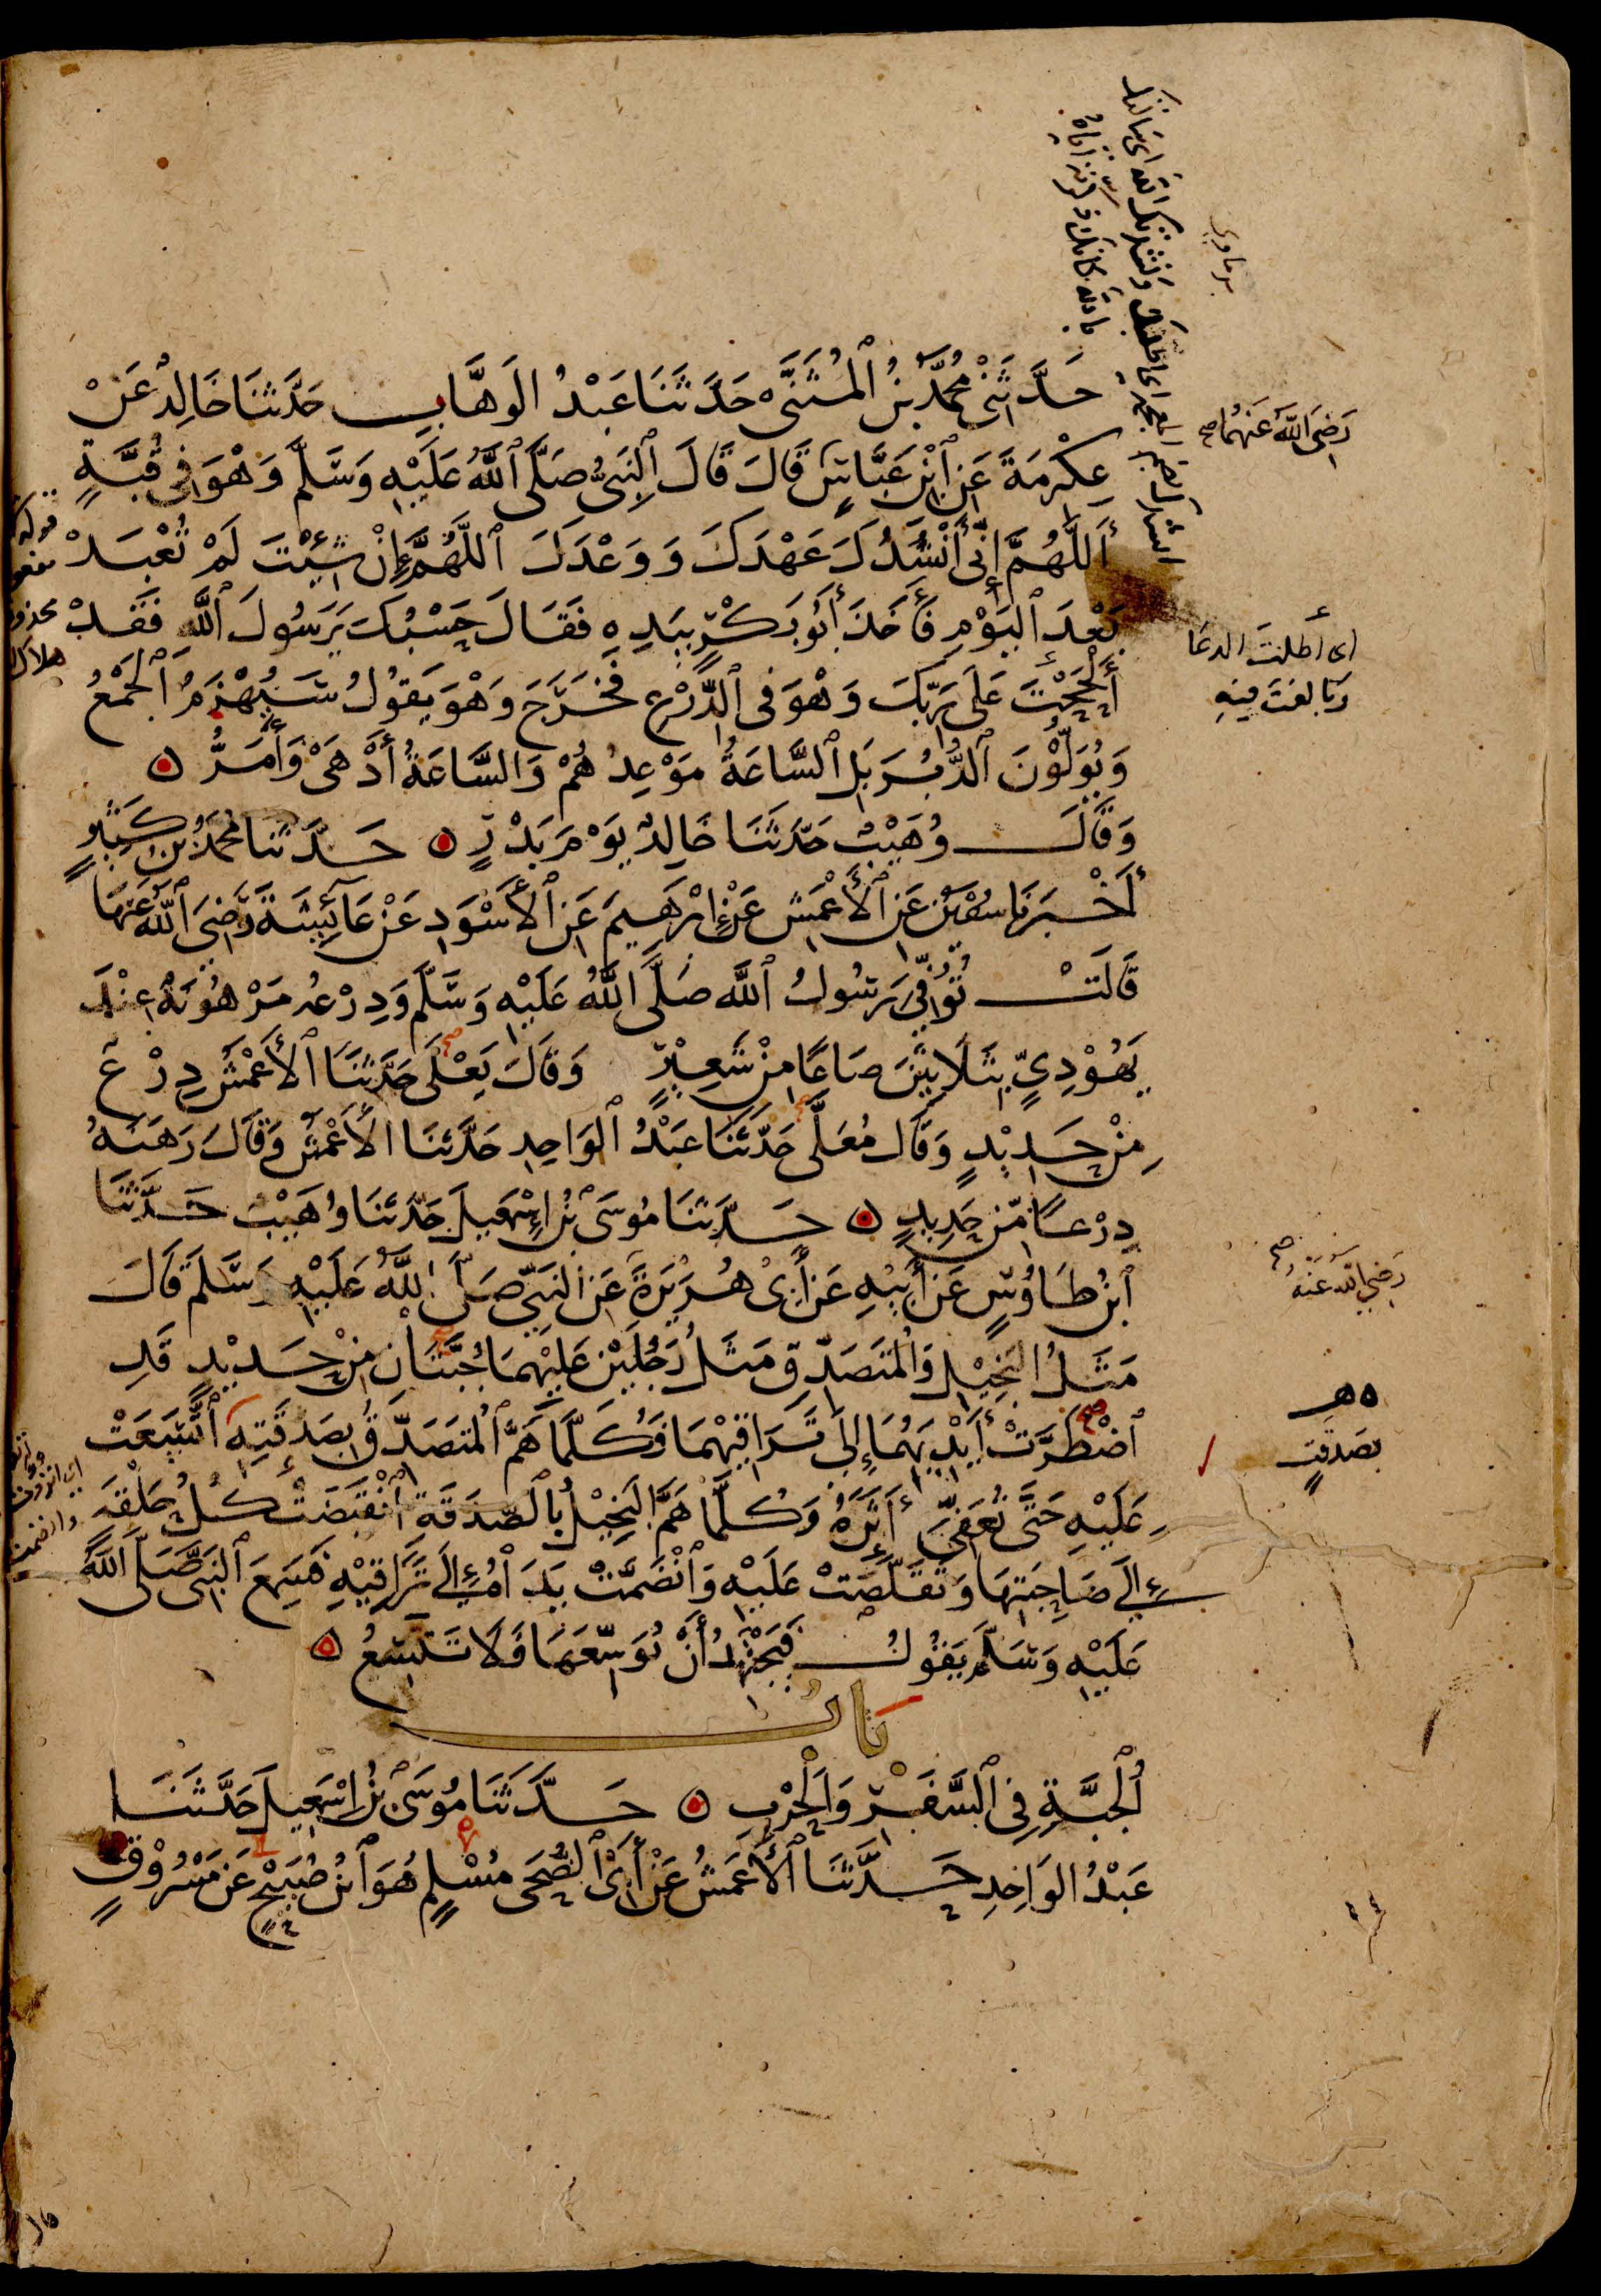 حَدَّثَنِي مُحَمَّدُ بْنُ ٱلْمُثَنَّى حَدَّثَنَا عَبْدُ الْوَهَّابِ حَدَّثَنَا خَالِدٌ عَنْ
رَضِيَ اللَّهُ عَنْهُمَا صح
عِكْرِمَةَ عَنِ ٱبْنِ عَبَّاسٍ قَالَ قَالَ ٱلنَّبِيُّ صَلَّى ٱللَّهُ عَلَيْهِ وَسَلَّمَ وَهْوَ فِي قُبَّةٍ
أَللَّهُمَّ إِنِّي أَنْشُدُكَ عَهْدَكَ وَوَعْدَكَ ٱللَّهُمَّ إِنْ شِئْتَ لَمْ تُعْبَدْ
بَعْدَ ٱلْيَوْمِ فَأَخَذَ أَبُو بَكْرٍ بِيَدِهِ فَقَالَ حَسْبُكَ يَرَسُولَ ٱللَّهِ فَقَدْ
اى أطلت الدعا
وبالغت فيه
أَلْحَحْتَ عَلَى رَبِّكَ وَهْوَ فِي ٱلدِّرْعِ فَخَرَجَ وَهْوَ يَقُولُ سَيُهْزَمُ ٱلْجَمْعُ
وَيُوَلُّوْنَ ٱلدُّبُرَ بَلِ ٱلسَّاعَةُ مَوْعِدُهُمْ وَالسَّاعَةُ أَدْهَى وَأَمَرُّ
وَقَالَ وُهَيْبٌ حَدَّثَنَا خَالِدٌ يَوْمَ بَدْرٍ حَدَّثَنَا مُحَمَّدُ بْنُ كَثِيْرٍ
أَخْبَرَنَا سُفْيَنُ عَنِ ٱلْأَعْمَشِ عَنْ إِبْرَهِيمَ عَنِ ٱلْأَسْوَدِ عَنْ عَائِشَةَ رَضِيَ ٱللَّهُ عَنْهَا
قَالَتْ تُوُفِّيَ رَسُولُ ٱللَّهِ صَلَّى اللَّهُ عَلَيْهِ وَسَلَّمَ وَدِرْعُهُ مَرْهُوْنَةٌ عِنْدَ
يَهُوْدِيٍّ بِثَلَاثِيْنَ صَاعًا مِنْ شَعِيْرٍ وَقَالَ يَعْلَى حَدَّثَنَا ٱلْأَعْمَشُ دِرْعٌ
مِنْ حَدِيْدٍ وَقَالَ مُعَلًّى حَدَّثَنَا عَبْدُ ٱلْوَاحِدِ حَدَّثَنَا الْأَعْمَشُ وَقَالَ رَهَنَهُ
دِرْعًا مِّنْ حَدِيدٍ حَدَّثَنَا مُوسَى بْنُ إِسْمَعِيلَ حَدَّثَنَا وُهَيْبٌ حَدَّثَنَا
رَضِيَ اللَّهُ عَنْهُ صح
ٱبْنُ طَاوُسٍ عَنْ أَبِيْهِ عَنْ أَبِى هُرَيْرَةَ عَنِ النَّبِيِّ صَلَّى اللَّهُ عَلَيْهِ وَسَلَّمَ قَالَ
مَثَلُ الْبَخِيْلِ وَالْمُتَصَدِّقِ مَثَلُ رَجُلَيْنِ عَلَيْهِمَا جُبَّتَانِ مِنْ حَدِيْدٍ قَدِ
ه هـ
بصدقةٍ
ٱضْطَرَّتْ أَيْدِيَهُمَا إِلَى تَرَاقِيْهِمَا فَكُلَّمَا هَمَّ ٱلْمُتَصَدِّقُ بِصَدَقَتِهِ ٱتَّسَعَتْ
عَلَيْهِ حَتَّى تُعَفِّيَ أَثَرَهُ وَكُلَّمَا هَمَّ الْبَخِيْلُ بِالصَّدَقَةِ ٱنْقَبَضَتْ كُلُّ حَلْقَةٍ
إِلَى صَاحِبَتِهَا وَتَقَلَّصَتْ عَلَيْهِ وَٱنْضَمَّتْ يَدَاهُ إِلَى تَرَاقِيْهِ فَسَمِعَ ٱلنَّبِيَّ صَلَّى اللَّهُ
عَلَيْهِ وَسَلَّمَ يَقُوْلُ فَيَجْتَهِدُ أَنْ يُوَسِّعَهَا فَلَا تَتَّسِعُ
بَابُ
ٱلْجُبَّةِ فِي ٱلسَّفَرِ وَالْحَرْبِ حَدَّثَنَا مُوسَى بْنُ إِسْمَعِيلَ حَدَّثَنَا
عَبْدُ الْوَاحِدِ حَدَّثَنَا ٱلْأَعْمَشُ عَنْ أَبِى ٱلضُّحَى مُسْلِمٍ هُوَ ٱبْنُ صُبَيْحٍ عَنْ مَسْرُوْقٍ